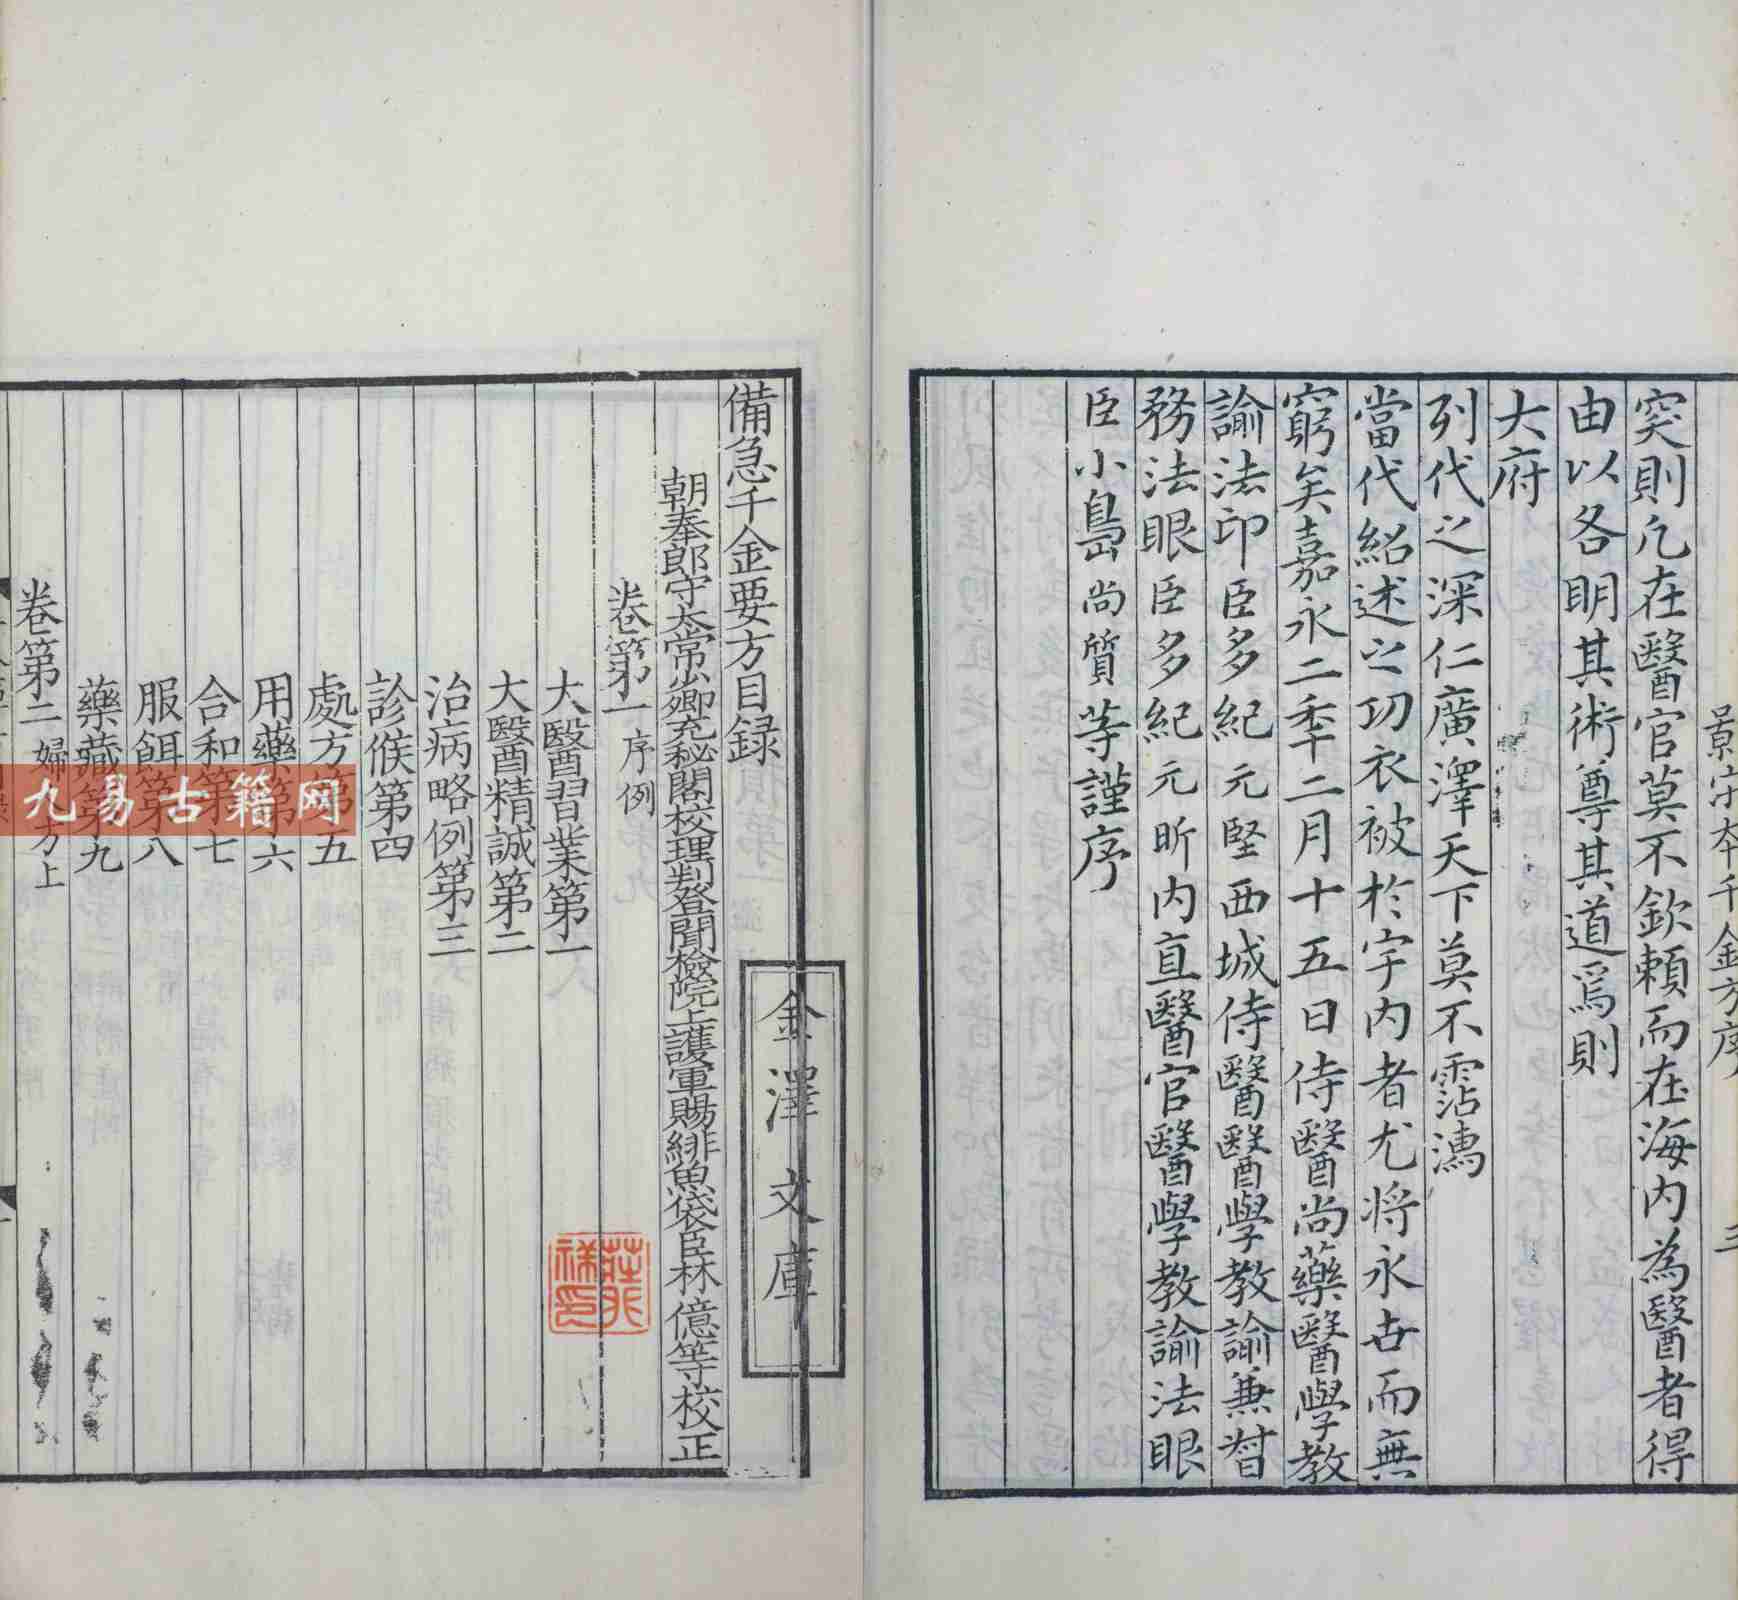 景宋本千金方序
三
突則凢在醫官莫不欽賴而在海内為醫者得
由以各明其術尊其道爲則
大府
列代之深仁廣澤天下莫不霑濡
當代紹述之功衣被於宇内者尤將永世而無
窮矣嘉永二季二月十五日侍醫尚藥醫學教
諭法印臣多紀元堅西城侍醫醫學教諭兼督
務法眼臣多紀元昕内直醫官醫學教諭法眼
臣小島尚質等謹序
備急千金要方目録
金澤文庫
朝奉郎守太常少卿充秘閣校理判登聞檢院上護軍賜緋魚袋臣林億等校正
卷第一序例
大醫習業第一
大醫精誠第二
治病略例第三
診候第四
處方第五
用藥第六
合和第七
服餌第八
藥藏第九
卷第二婦人方上
九易古籍网